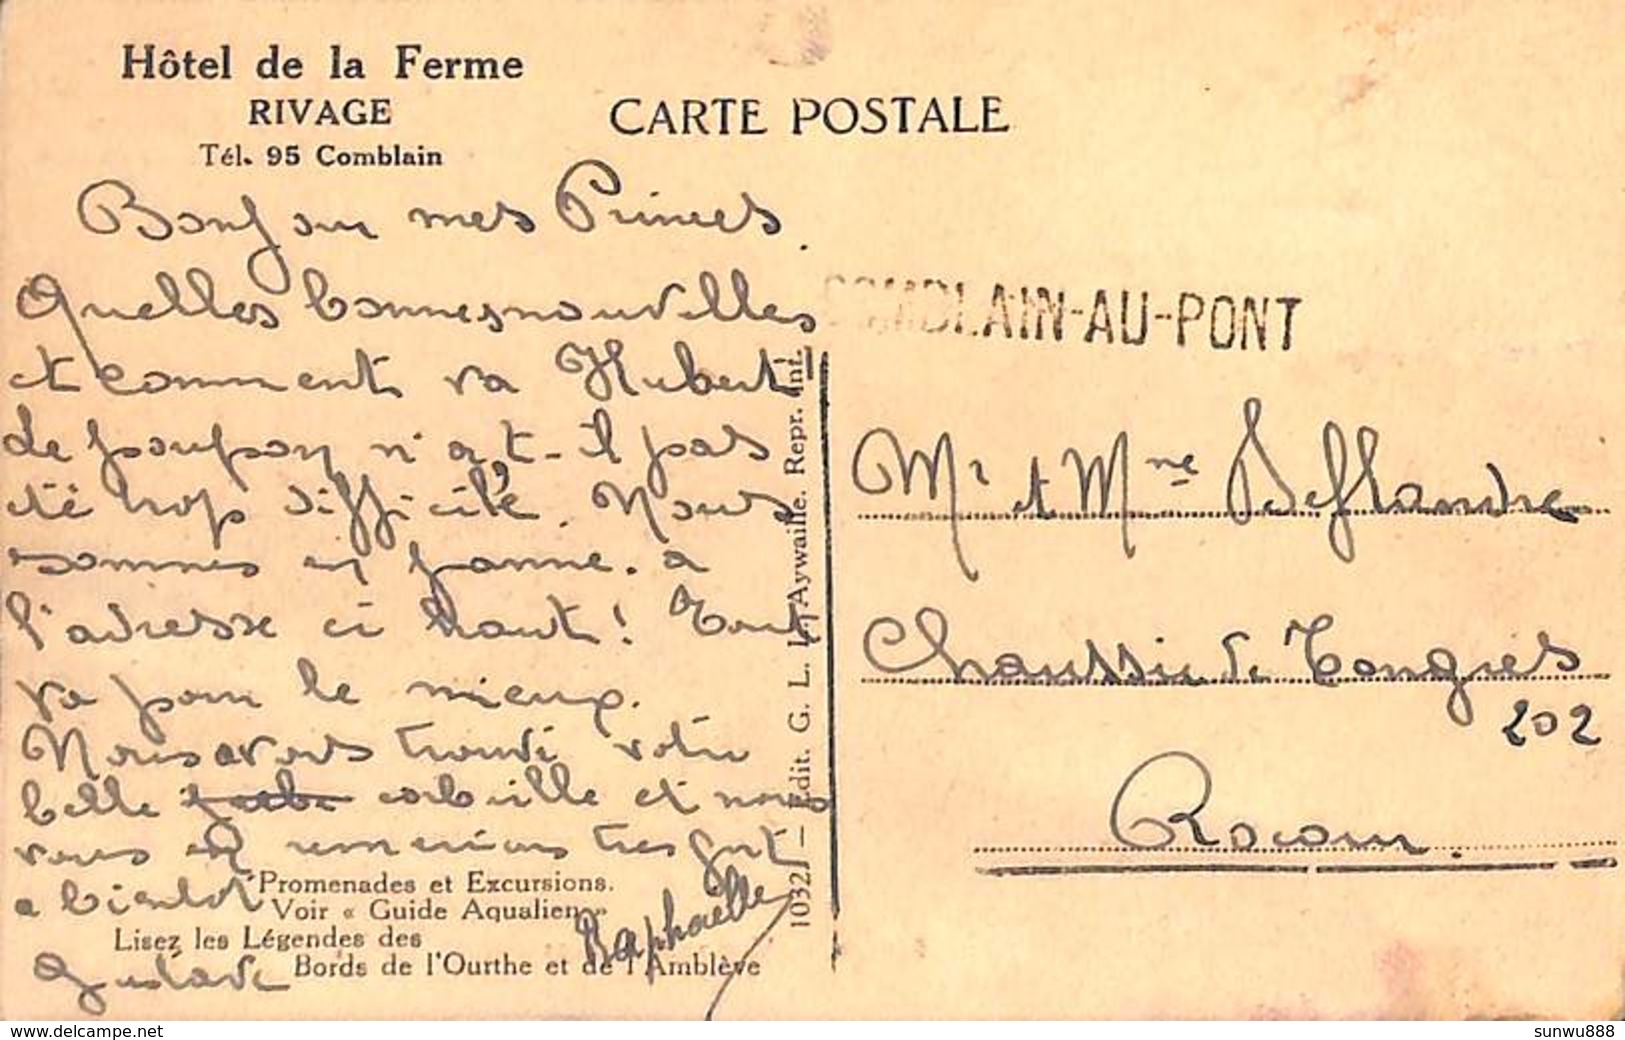 Hôtel de la Ferme
RIVAGE
Tél. 95 Comblain
CARTE POSTALE
Bonjour mes Princes.
Quelles bonnes nouvelles
et comment va Hubert
le poupon n'a t-il pas
été trop difficile. Nous
sommes en panne. a
l'adresse ci haut! Tout
va pour le mieux.
Nous avons trouvé votre
belle corbeille et nous
vous en remercions tres fort
a bientot
Gustave
Raphaelle
Promenades et Excursions.
Voir « Guide Aqualien »
Lisez les Légendes des
Bords de l'Ourthe et de l'Amblève
10321 — Edit. G. L. Aywaille. Repr. Int.
COMBLAIN-AU-PONT
Mr et Mme Deflandre
Chaussée de Tongres
202
Rocour.
www.delcampe.net
sunwu888